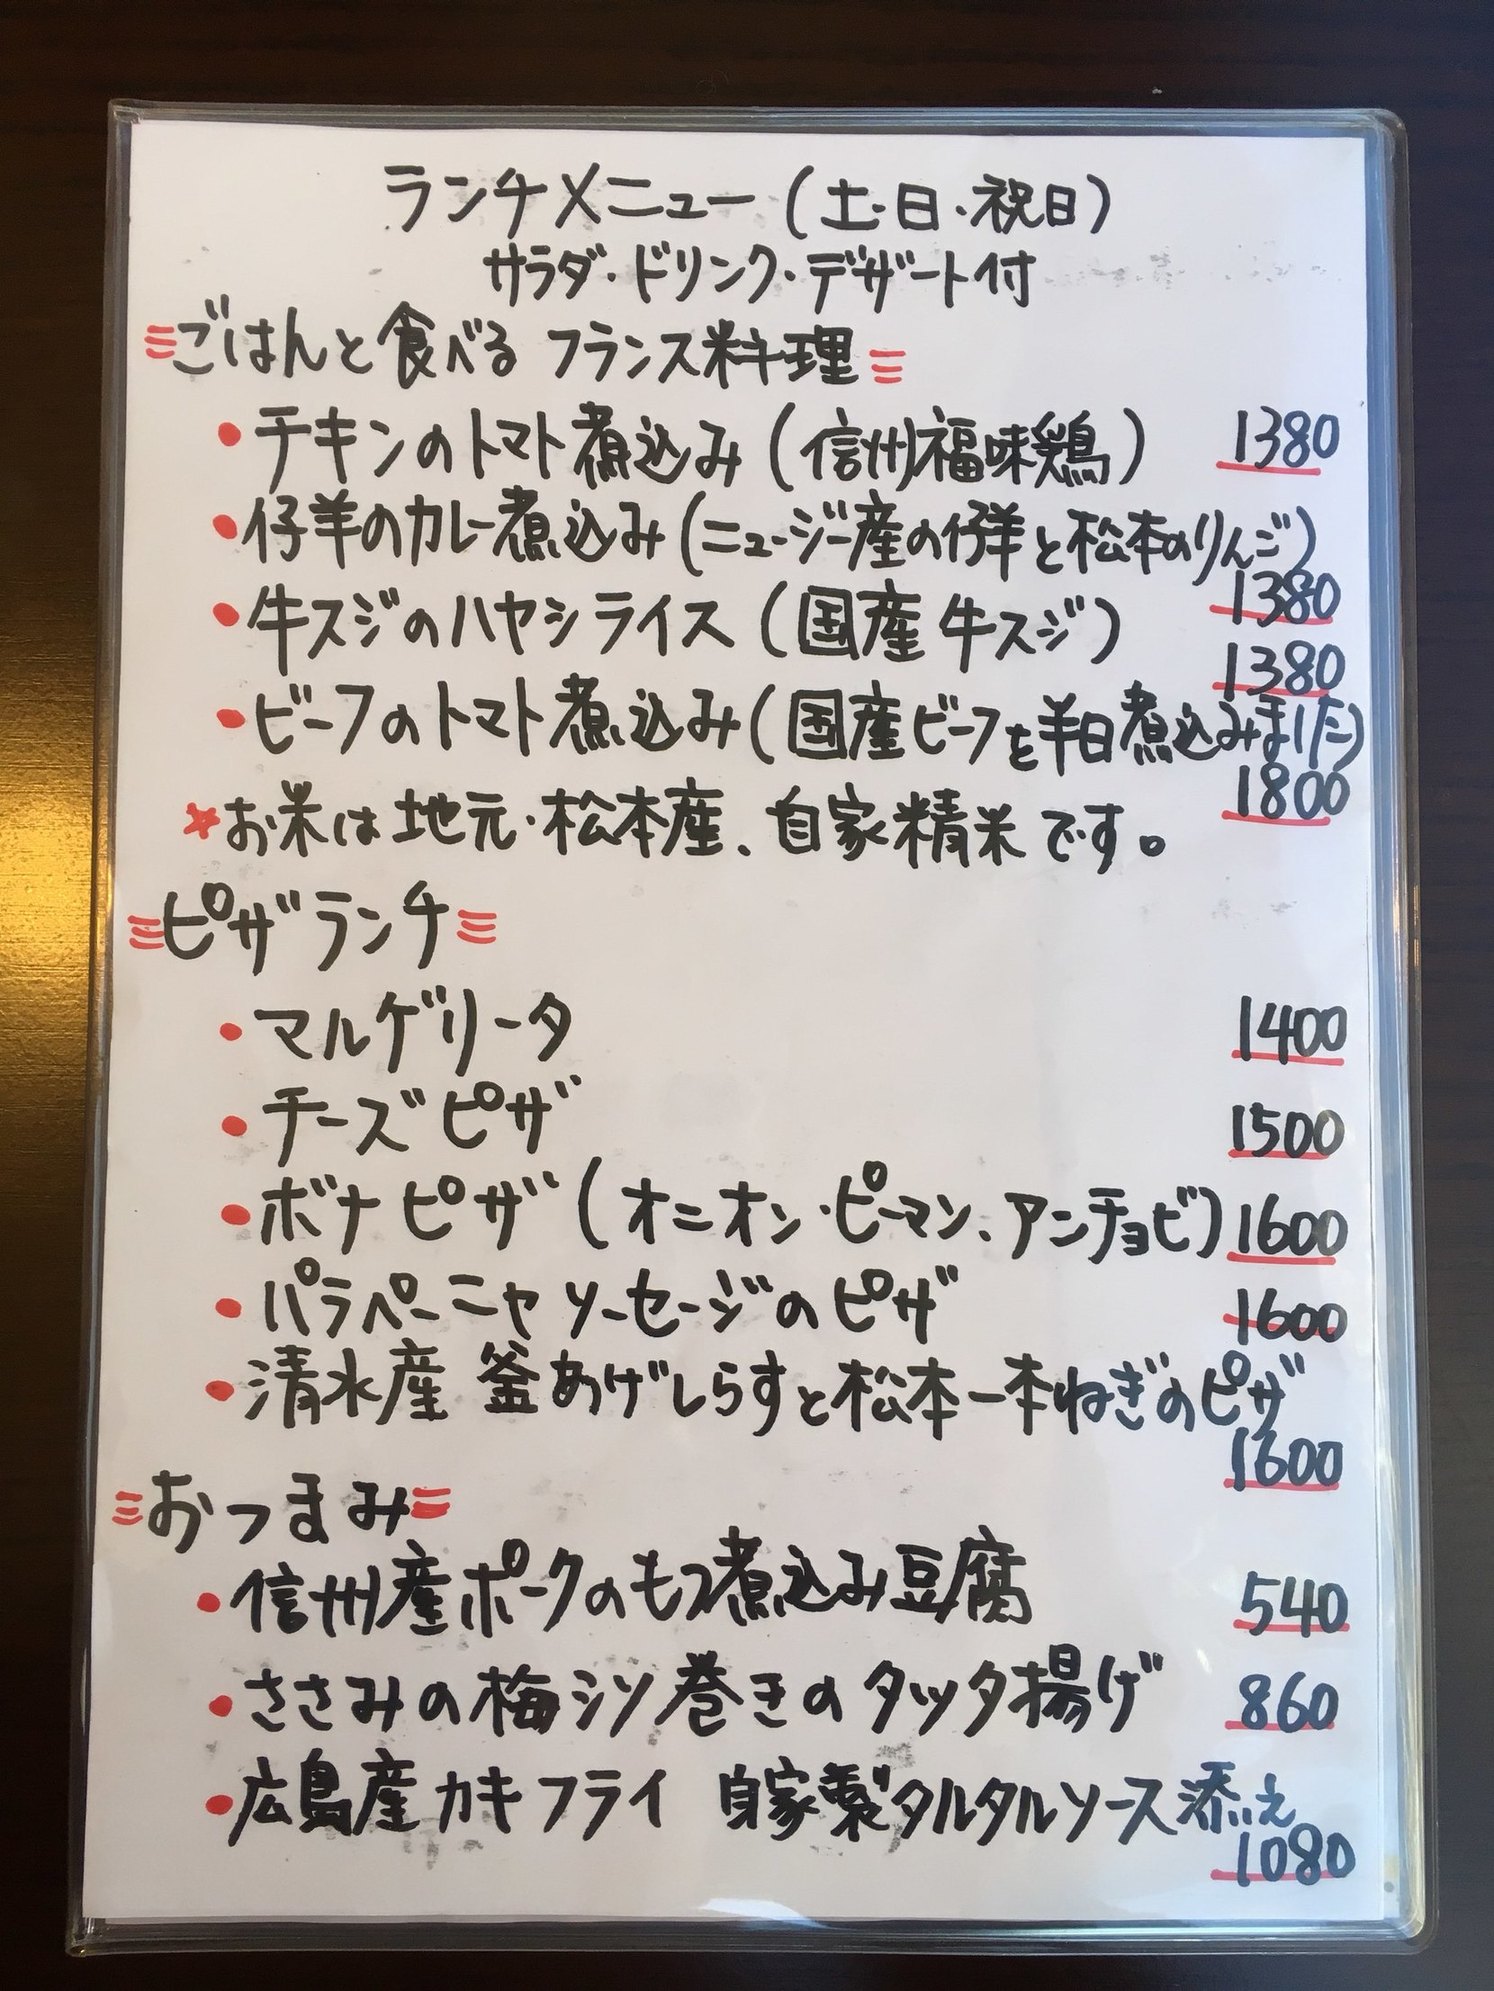 ランチメニュー(土・日・祝日)
サラダ・ドリンク・デザート付
ごはんと食べるフランス料理
・チキンのトマト煮込み(信州福味鶏) 1380
・仔羊のカレー煮込み(ニュージー産の仔羊と松本のりんご)
1380
・牛スジのハヤシライス(国産牛スジ)
1380
・ビーフのトマト煮込み(国産ビーフを半日煮込みました)
1800
★お米は地元・松本産、自家精米です。
ピザランチ
・マルゲリータ 1400
・チーズピザ 1500
・ボナピザ(オニオン・ピーマン、アンチョビ) 1600
・パラペーニャソーセージのピザ 1600
・清水産 釜あげしらすと松本一本ねぎのピザ
1600
おつまみ
・信州産ポークのもつ煮込み豆腐 540
・ささみの梅シソ巻きのタツタ揚げ 860
・広島産カキフライ 自家製タルタルソース添え
1080